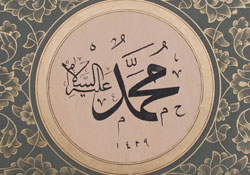 محمد عليه السلام
١٤٢٩